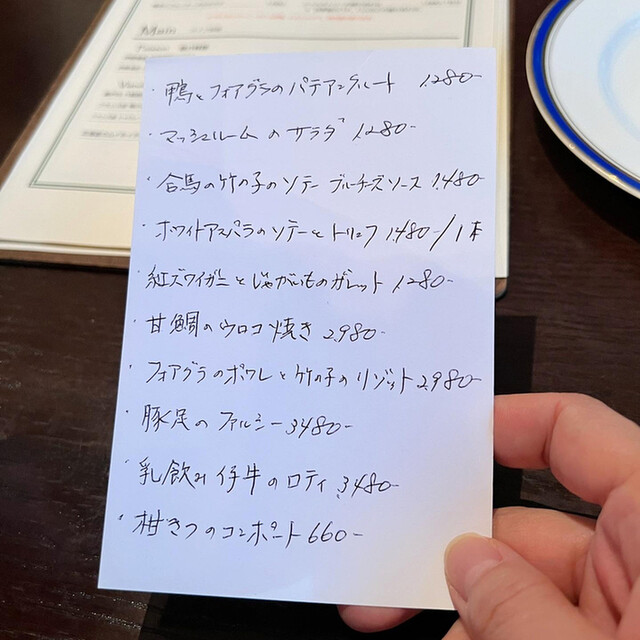 Main
・鴨とフォアグラのパテアンクルート 1,280-
・マッシュルームのサラダ 1,280-
・合馬の竹の子のソテー ブルーチーズソース 1,480-
・ホワイトアスパラのソテーとトリュフ 1,480-/1本
・紅ズワイガニとじゃがいものガレット 1,280-
・甘鯛のウロコ焼き 2,980-
・フォアグラのポワレと竹の子のリゾット 2,980-
・豚足のファルシー 3,480-
・乳飲み仔牛のロティ 3,480-
・柑きつのコンポート 660-